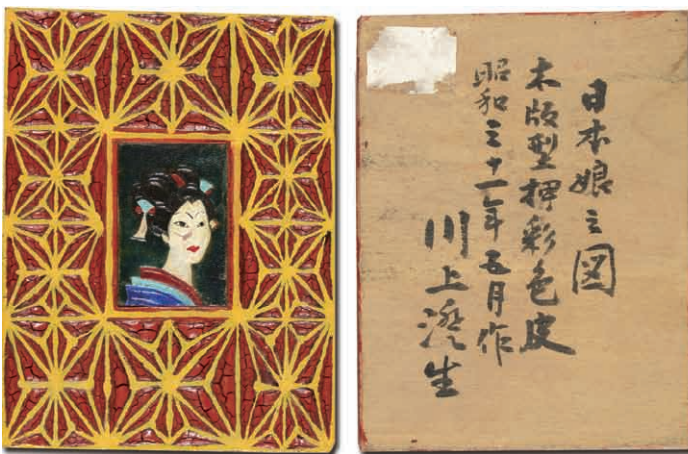 日本娘之図
木版型押彩色皮
昭和三十一年五月作
川上澄生